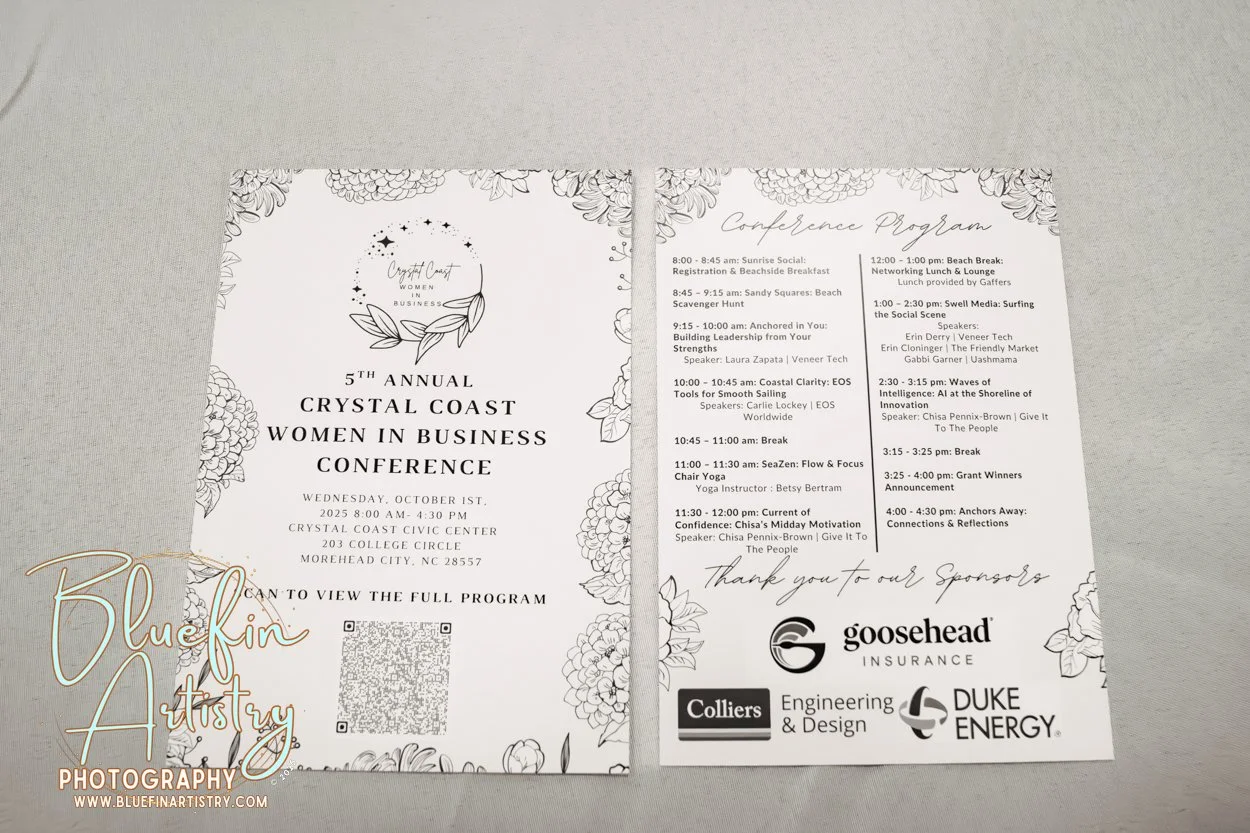 Crystal Coast
WOMEN
IN
BUSINESS
5TH ANNUAL
CRYSTAL COAST
WOMEN IN BUSINESS
CONFERENCE
WEDNESDAY, OCTOBER 1ST,
2025 8:00 AM- 4:30 PM
CRYSTAL COAST CIVIC CENTER
203 COLLEGE CIRCLE
MOREHEAD CITY, NC 28557
CAN TO VIEW THE FULL PROGRAM
Conference Program
8:00 - 8:45 am: Sunrise Social:
Registration & Beachside Breakfast
8:45 – 9:15 am: Sandy Squares: Beach
Scavenger Hunt
9:15 - 10:00 am: Anchored in You:
Building Leadership from Your
Strengths
Speaker: Laura Zapata | Veneer Tech
10:00 – 10:45 am: Coastal Clarity: EOS
Tools for Smooth Sailing
Speakers: Carlie Lockey | EOS
Worldwide
10:45 – 11:00 am: Break
11:00 – 11:30 am: SeaZen: Flow & Focus
Chair Yoga
Yoga Instructor : Betsy Bertram
11:30 - 12:00 pm: Current of
Confidence: Chisa's Midday Motivation
Speaker: Chisa Pennix-Brown | Give It To
The People
12:00 – 1:00 pm: Beach Break:
Networking Lunch & Lounge
Lunch provided by Gaffers
1:00 – 2:30 pm: Swell Media: Surfing
the Social Scene
Speakers:
Erin Derry | Veneer Tech
Erin Cloninger | The Friendly Market
Gabbi Garner | Uashmama
2:30 - 3:15 pm: Waves of
Intelligence: AI at the Shoreline of
Innovation
Speaker: Chisa Pennix-Brown | Give It
To The People
3:15 - 3:25 pm: Break
3:25 - 4:00 pm: Grant Winners
Announcement
4:00 - 4:30 pm: Anchors Away:
Connections & Reflections
Thank you to our Sponsors
goosehead
INSURANCE
Colliers
Engineering
& Design
DUKE
ENERGY®
Bluefin
Artistry
PHOTOGRAPHY
WWW.BLUEFINARTISTRY.COM